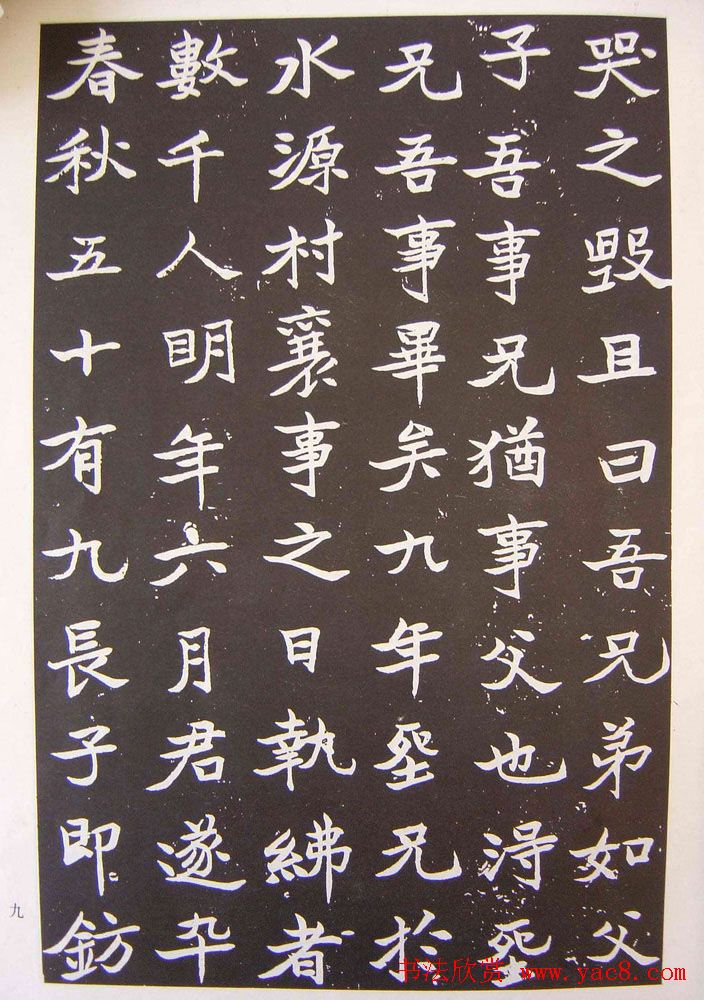 哭之毀且曰吾兄弟如父
子吾事兄猶事父也得葬
兄吾事畢矣九年葬兄於
水源村襄事之日執紼者
數千人明年六月君遂卒
春秋五十有九長子即鈁
九
书法欣赏 www.yac8.com